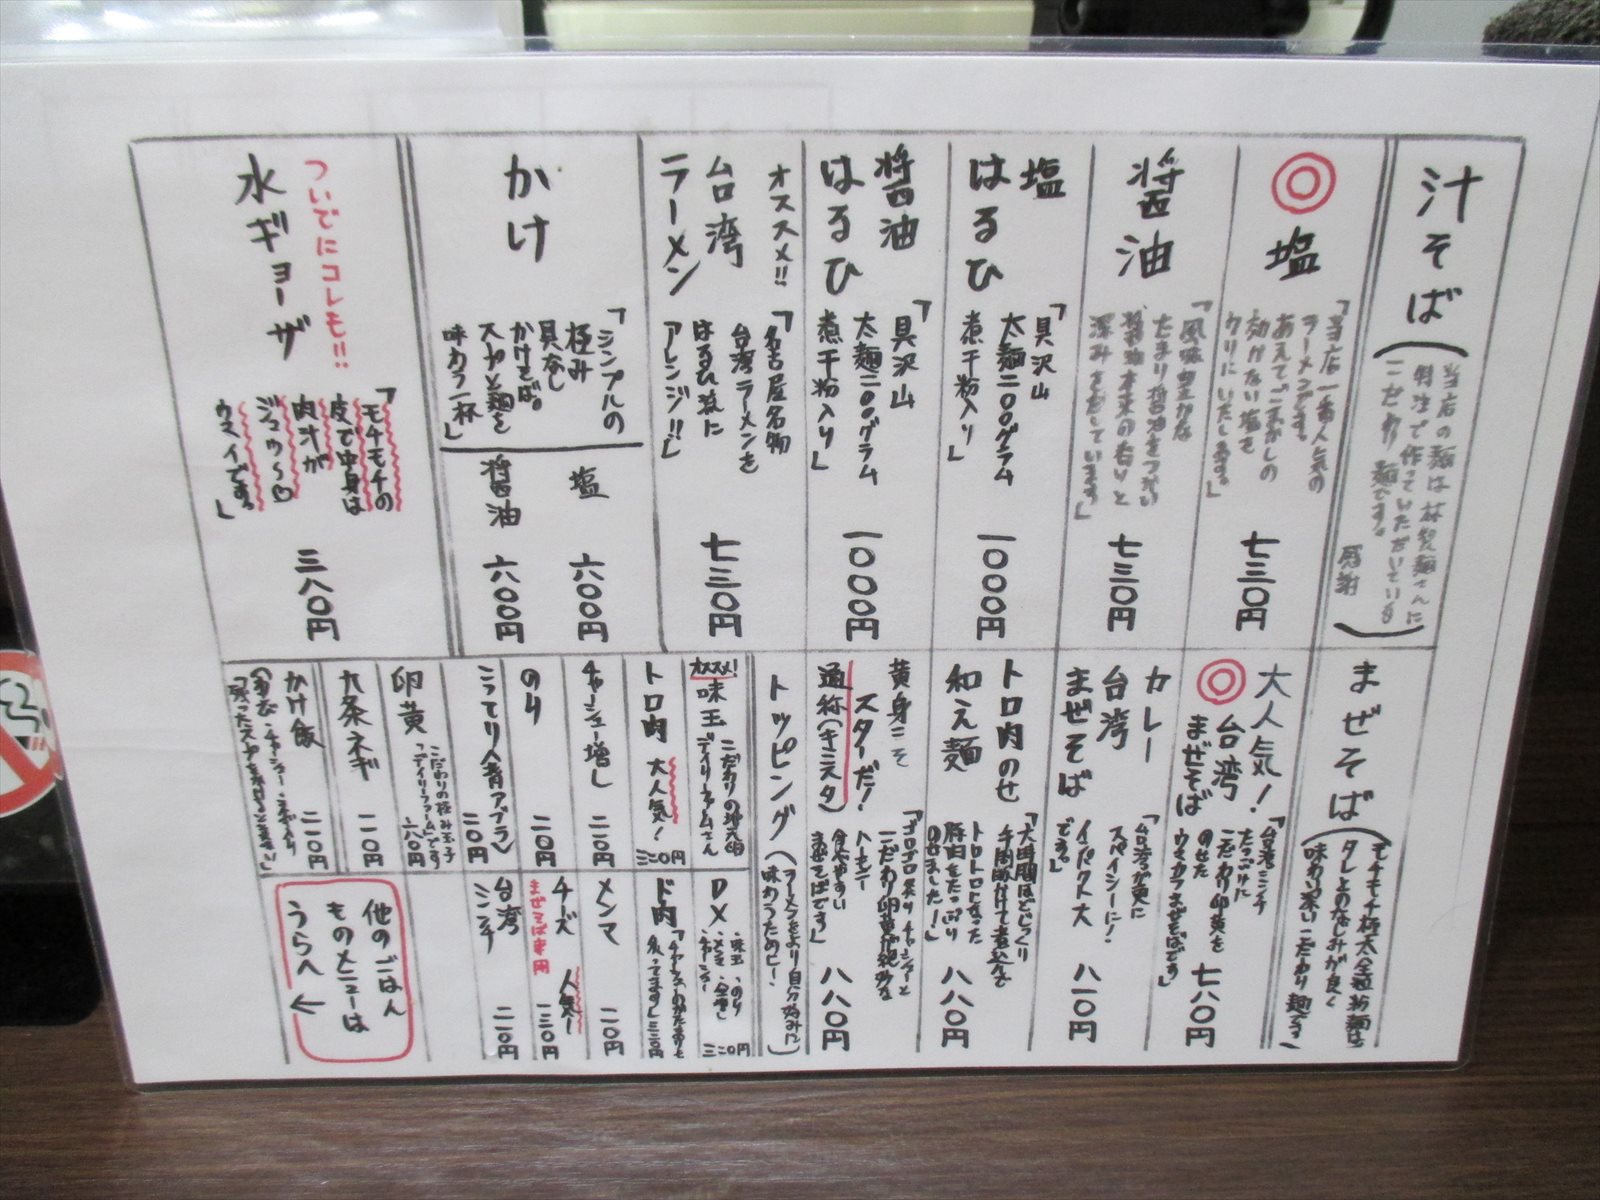 汁そば
当店の麺は林製麺さんに
特注で作っていただいている
こだわり麺です。
感謝
◎塩
「当店一番人気の
ラーメンです。
あえてごまかしの
効かない塩を
ウリにいたします。」
七三〇円
醤油
「風味豊かな
たまり醤油をつかい
醤油本来の旨いと
深みをだしています」
七三〇円
塩
はるひ
「具沢山
太麺二〇〇グラム
煮干粉入り」
一〇〇〇円
醤油
はるひ
「具沢山
太麺二〇〇グラム
煮干粉入り」
一〇〇〇円
オススメ!!
台湾
ラーメン
「名古屋名物
台湾ラーメンを
はるひ流に
アレンジ!!」
七三〇円
かけ
「シンプルの
極み
具なし
かけそば。
スープと麺を
味わう一杯」
塩
六〇〇円
醤油
六〇〇円
ついでにコレも!!
水ギョーザ
「モチモチの
皮で中身は
肉汁が
ジュゥ〜♡
ウマイです。」
三八〇円
まぜそば
(モチモチ極太全粒粉麺は
タレとのなじみが良く
味わい深いこだわり麺です)
大人気!
◎台湾
まぜそば
「台湾ミンチ
たっぷりに
こだわり卵黄を
のせた
ウマカラまぜそばです」
七八〇円
カレー
台湾
まぜそば
「台湾が更に
スパイシーに!
インパクト大
です。」
八一〇円
トロ肉のせ
和え麺
「大時間ほどじっくり
手間掛けて煮込んで
トロトロになった
豚肉をたっぷり
のせました!」
八八〇円
黄身こそ
スターだ!
通称(キミスタ)
「ゴロゴロ炙りチャーシューと
こだわり卵黄が絶妙な
ハーモニー
食べやすい
まぜそばです」
八八〇円
トッピング
(ラーメンをより自分好みに
味わうために!)
オススメ!
味玉
こだわりの地元の卵
「デイリーファーム」さん
トロ肉
大人気!
三二〇円
チャーシュー増し
二一〇円
のり
二一〇円
こってり(背アブラ)
二〇円
卵黄
こだわりの極み玉子
「デイリーファーム」です
六〇円
九条ネギ
一一〇円
かけ飯
二一〇円
DX
・味玉・のり
・メンマ・全増し
・チャーシュー
三二〇円
ド肉
「チャーシューのかたまりを
炙ってます」
三三〇円
メンマ
一一〇円
チーズ
人気!
まぜそば専用
一三〇円
台湾
ミンチ
二一〇円
他のごはん
ものメニューは
うらへ
←